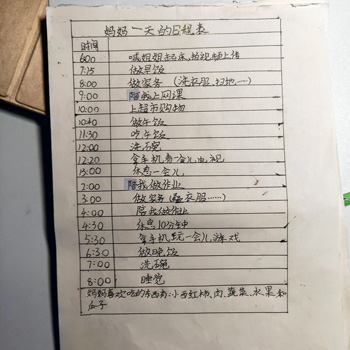 妈妈一天的日程表
时间
6:00 喊姐姐起床,拍视频上传
7:15 做早饭
8:00 做家务(洗衣服,扫地…)
9:00 陪我上网课
10:00 上超市购物
10:40 做午饭
11:30 吃午饭
12:00 洗碗
12:20 拿手机看一会儿电视
13:00 休息一会儿
2:00 陪我做作业
3:00 做家务(叠衣服……)
4:00 陪我做作业
4:30 休息10分钟
5:30 拿手机玩一会儿游戏
6:30 做晚饭
7:00 洗碗
8:00 睡觉
妈妈喜欢吃的东西有:小西红柿、肉、蔬菜、水果和
瓜子